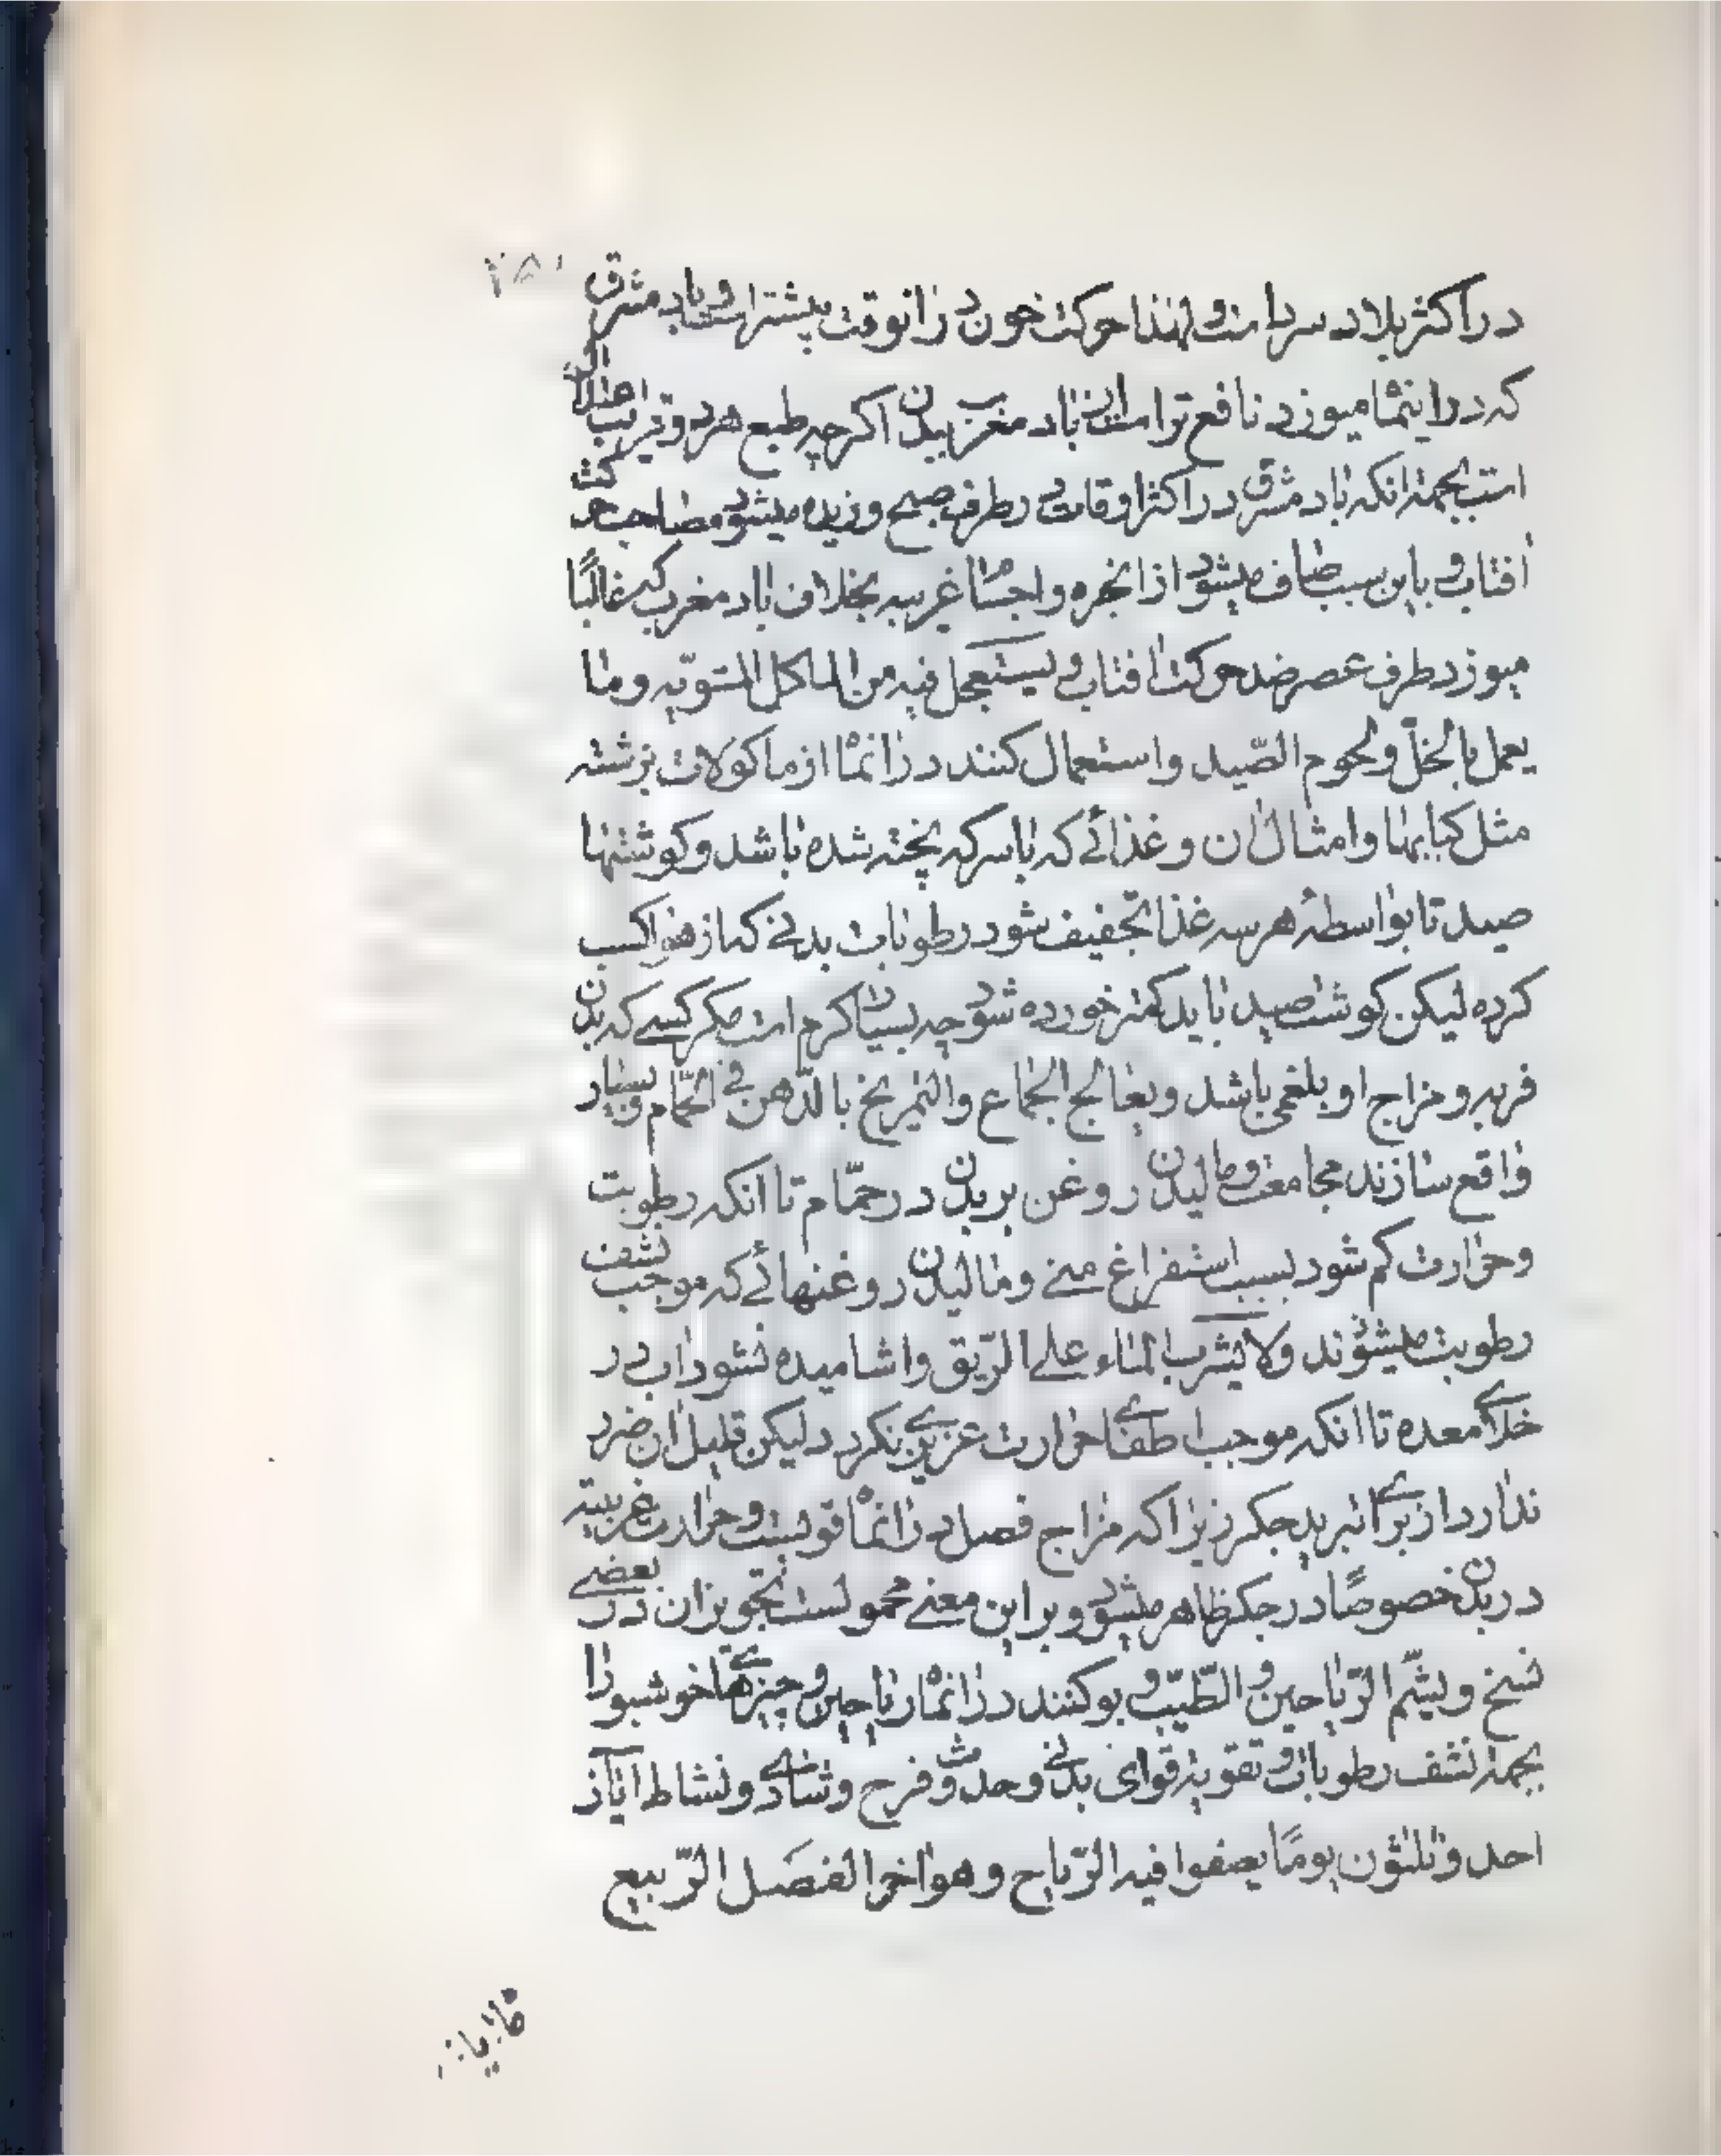 در اکثر بلاد سرد است و لهذا حرکت خون در انوقت بیشتر است و باد مشرق
که در اینماه میوزد نافع تر است از باد مغرب ببدن اکرچه طبع هر دو قریب باعتدال
است بجهة انکه باد مشرق در اکثر اوقات در طرف صبح وزیده میشود مصاحب حرکت
افتاب و باین سبب صاف میشود از ابخره و اجسام غریبه بخلاف باد مغرب که غالبًا
میوزد طرف عصر ضد حرکت افتاب و یستعمل فیه من الماکل المشویّه و ما
یعمل بالخلّ و لحوم الصّید و استعمال کنند در انماه از ماکولات برشته
مثل کبابها و امثال ان و غذائے که با سرکه پخته شده باشد و کوشتها
صید تا بواسطۀ هر سه غذا تجفیف شود رطوبات بدنے که از هوا کسب
کرده لیکن کوشت صید باید کمتر خورده شود چه بسیار کرم است مکر کسے که بدن
فربه و مزاج او بلغمی باشد و یعالج الجماع و التمریخ بالدّهن فے الحمّام و بسیار
واقع سازند مجامعت و مالیدن روغن بر بدن در حمّام تا انکه رطوبت
و حرارت کم شود بسبب استفراغ منے و مالیدن روغنهائے که موجب نشف
رطوبت میشوند و لا یشرب الماء علے الرّیق و اشامیده نشود اب در
خلاے معده تا انکه موجب اطفاے حرارت غریزے نکردد لیکن قلیل ان ضرر
ندارد از براے تبرید جکر زیرا که مزاج فصل در انماه قویست و حرارت غریبته
در بدن خصوصًا در جکر ظاهر میشود و بر این معنے محمولست تجویز ان در بعضے
نسخ و یشّم الرّیاحین و الطّیب و بو کنند در انماه ریاحین و چیزهاے خوشبو را
بجهة نشف رطوبات و تقویة قوای بدنے و حدث و فرح و شادے و نشاط ایار
احد و ثلثون یومًا یصفوا فیه الرّیاح و هو اخر الفصل الرّبیع